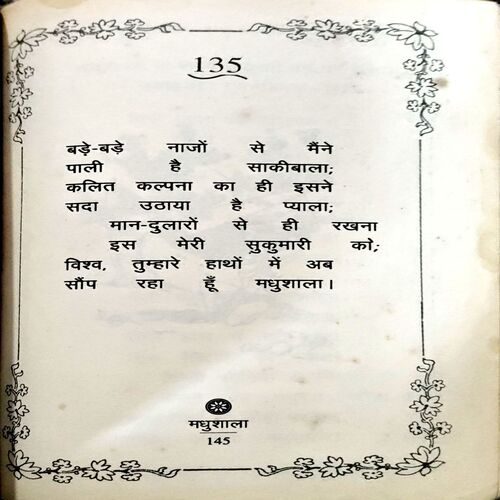 135
बड़े-बड़े नाजों से मैंने
पाली है साकीबाला;
कलित कल्पना का ही इसने
सदा उठाया है प्याला;
मान-दुलारों से ही रखना
इस मेरी सुकुमारी को;
विश्व, तुम्हारे हाथों में अब
सौंप रहा हूँ मधुशाला।
मधुशाला
145